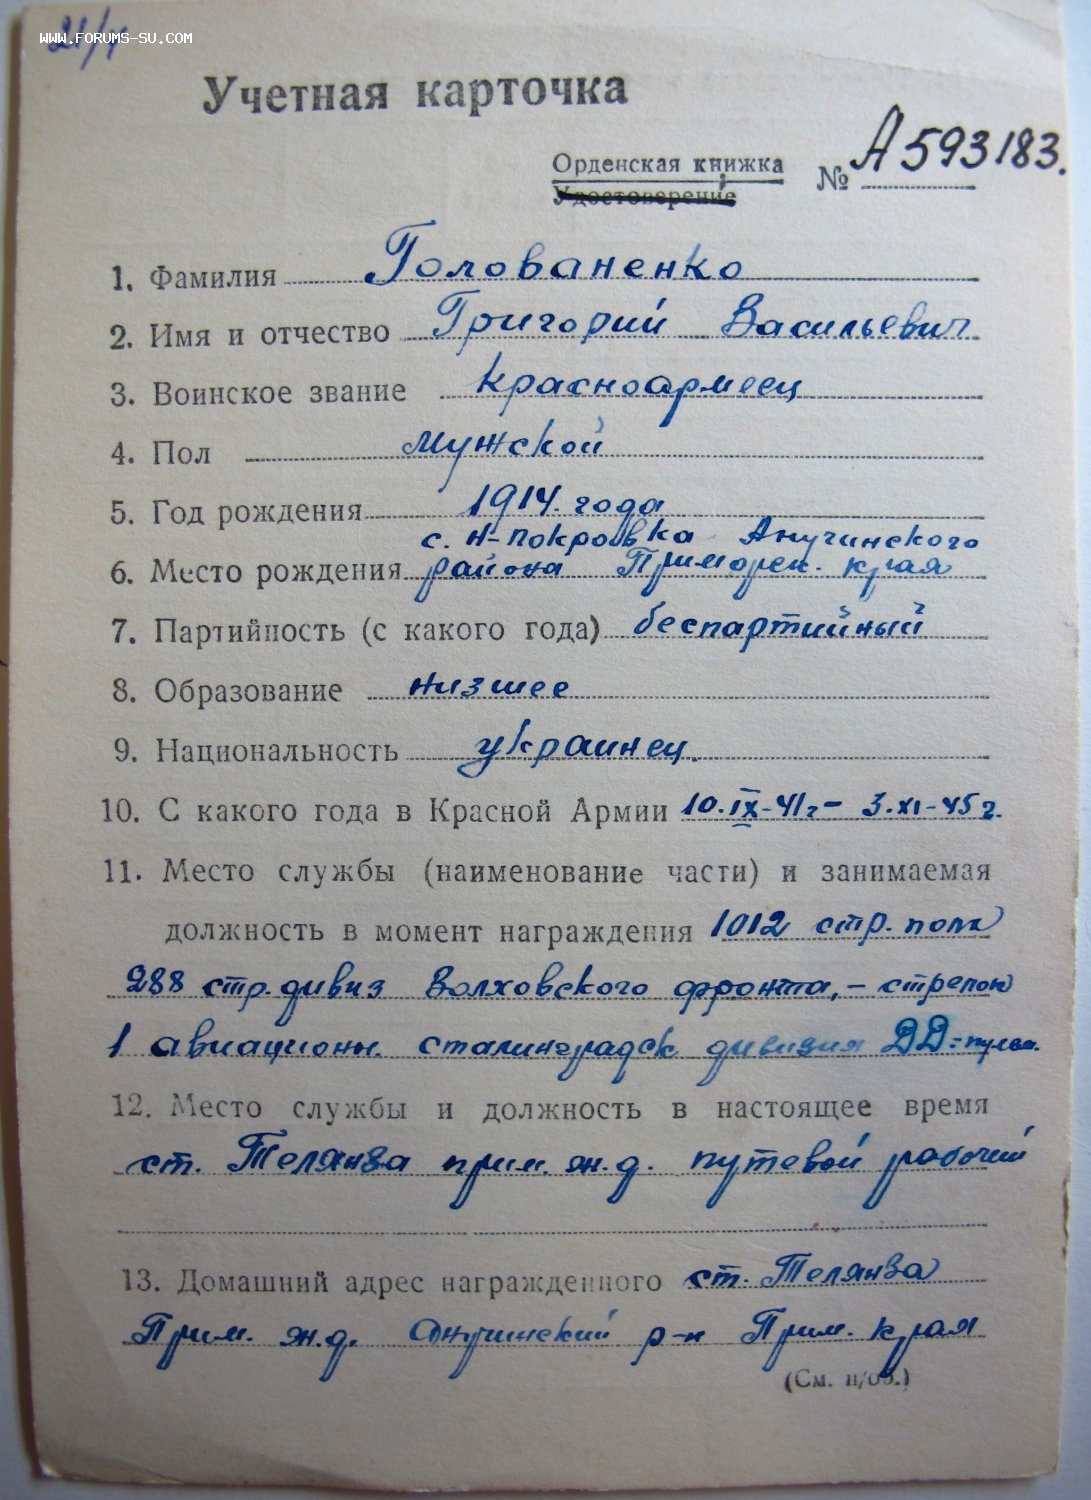 21/
WWW.FORUMS-SU.COM
Учетная карточка
Орденская книжка № А593183.
Удостоверение
1. Фамилия Голованенко
2. Имя и отчество Григорий Васильевич
3. Воинское звание красноармеец
4. Пол мужской
5. Год рождения 1914. года
с. Н-Покровка Анучинского
6. Место рождения района Приморск. края
7. Партийность (с какого года) беспартийный
8. Образование низшее
9. Национальность украинец.
10. С какого года в Красной Армии 10.IX-41г – 3.XI-45г.
11. Место службы (наименование части) и занимаемая
должность в момент награждения 1012 стр. полк
288 стр. дивиз Волховского фронта, – стрелок
1 авиационн. сталинградск дивизия ДД=
12. Место службы и должность в настоящее время
ст. Телянза прим. ж.д. путевой рабочий
13. Домашний адрес награжденного ст. Телянза
Прим. ж.д. Анучинский р-н Прим. края
(См. н/об.)